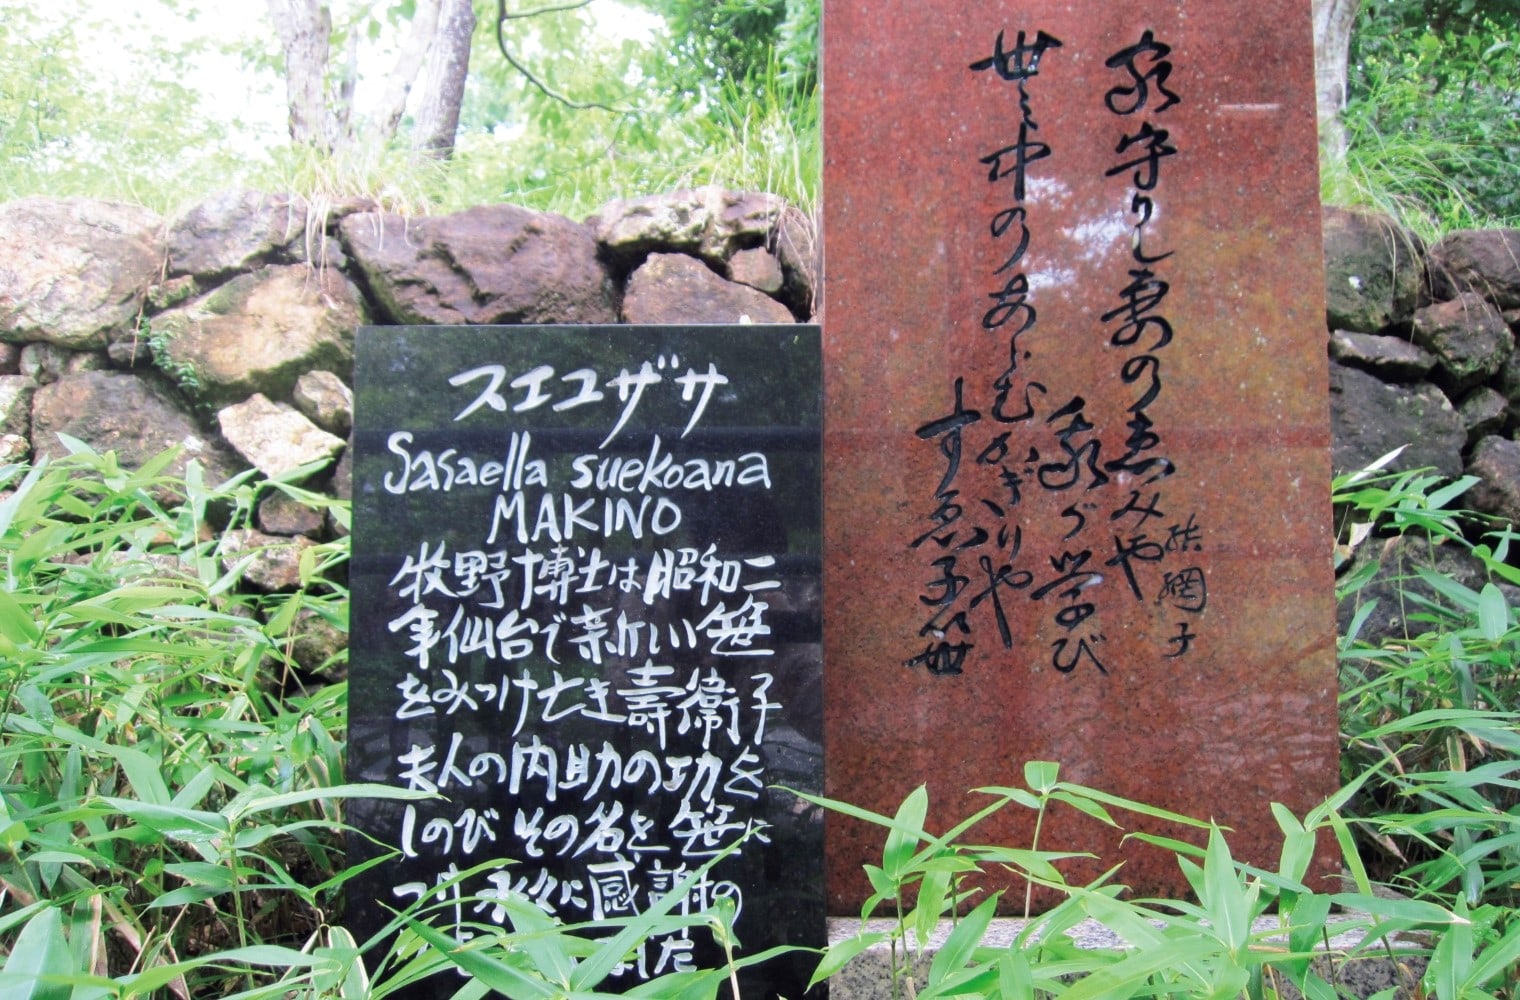 家守りし妻の恵みや
我が学び
世の中のあらむかぎりや
すゑ子笹
結網子
スエコザサ
Sasaella suekoana
MAKINO
牧野博士は昭和二
年仙台で新しい笹
をみつけ亡き壽衛子
夫人の内助の功を
しのびその名を笹に
つけ永久に感謝の
ました